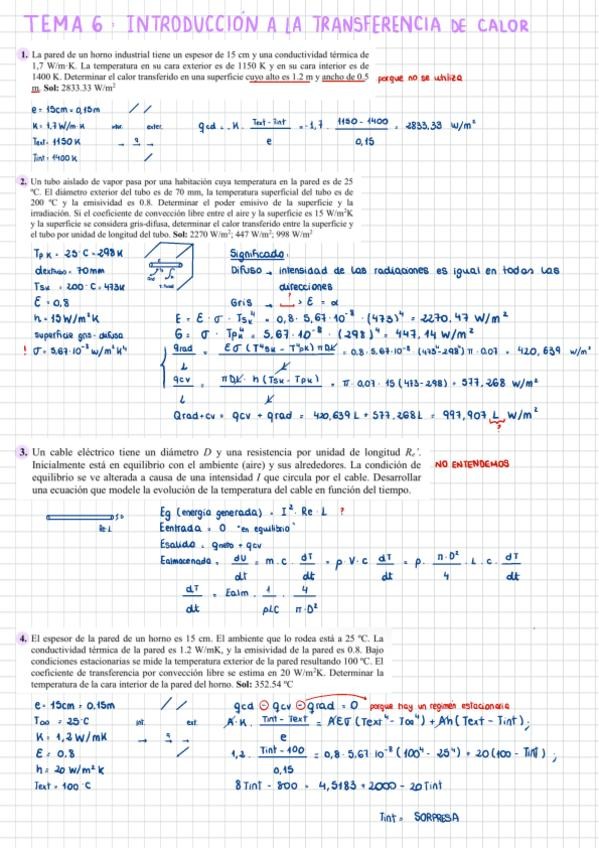 TEMA 6: INTRODUCCIÓN A LA TRANSFERENCIA DE CALOR
1. La pared de un horno industrial tiene un espesor de 15 cm y una conductividad térmica de
1,7 W/m·K. La temperatura en su cara exterior es de 1150 K y en su cara interior es de
1400 K. Determinar el calor transferido en una superficie cuyo alto es 1.2 m y ancho de 0.5
m. Sol: 2833.33 W/m²
porque no se utiliza
e = 15cm = 0,15m
K = 1,7 W/m·K
Text = 1150 K
Tint = 1400 K
int. exter.
qcd = -K · (Text - Tint) / e = -1,7 · (1150 - 1400) / 0,15 = 2833,33 W/m²
2. Un tubo aislado de vapor pasa por una habitación cuya temperatura en la pared es de 25
ºC. El diámetro exterior del tubo es de 70 mm, la temperatura superficial del tubo es de
200 ºC y la emisividad es 0.8. Determinar el poder emisivo de la superficie y la
irradiación. Si el coeficiente de convección libre entre el aire y la superficie es 15 W/m²K
y la superficie se considera gris-difusa, determinar el calor transferido entre la superficie y
el tubo por unidad de longitud del tubo. Sol: 2270 W/m²; 447 W/m²; 998 W/m²
Tp K = 25 ºC = 298 K
dextubo = 70mm
Tsu = 200 ºC = 473K
ε = 0,8
h = 15 W/m²K
superficie gris - difusa
! σ = 5,67·10⁻⁸ W/m²K⁴
Significado:
Difuso → intensidad de las radiaciones es igual en todas las
direcciones
Gris → ε = α
E = ε · σ · Tsu⁴ = 0,8 · 5,67·10⁻⁸ · (473)⁴ = 2270,47 W/m²
G = σ · Tpu⁴ = 5,67·10⁻⁸ · (298)⁴ = 447,14 W/m²
qrad / L = 0,8 · 5,67·10⁻⁸ (473⁴-298⁴) π · 0,07 = 420,639 W/m²
qcv / L = πDL · h (Tsu - Tpu) / L = π · 0,07 · 15 (473-298) = 577,268 W/m²
Qrad+cv = qcv + qrad = 420,639 L + 577,268 L = 997,907 L W/m²
?
3. Un cable eléctrico tiene un diámetro D y una resistencia por unidad de longitud Re'.
Inicialmente está en equilibrio con el ambiente (aire) y sus alrededores. La condición de
equilibrio se ve alterada a causa de una intensidad I que circula por el cable. Desarrollar
una ecuación que modele la evolución de la temperatura del cable en función del tiempo.
NO ENTENDEMOS
Eg (energía generada) = I² · Re · L ?
Eentrada = 0 "en equilibrio"
Esalida = qneto + qcv
Ealmacenada = dU/dt = m · c · dT/dt = ρ · V · c dT/dt = ρ · π·D²/4 · L · c · dT/dt
dT/dt = Ealm · 1/ρLC · 4/π·D²
4. El espesor de la pared de un horno es 15 cm. El ambiente que lo rodea está a 25 ºC. La
conductividad térmica de la pared es 1.2 W/mK, y la emisividad de la pared es 0.8. Bajo
condiciones estacionarias se mide la temperatura exterior de la pared resultando 100 ºC. El
coeficiente de transferencia por convección libre se estima en 20 W/m²K. Determinar la
temperatura de la cara interior de la pared del horno. Sol: 352.54 ºC
e = 15cm = 0.15m
T∞ = 25ºC
K = 1,2 W/mK
ε = 0.8
h = 20 W/m²K
Text = 100 ºC
int. ext.
qcd - qcv - qrad = 0 porque hay un régimen estacionario
A·K · (Tint - Text) / e = Aεσ (Text⁴ - T∞⁴) + Ah (Text - Tint) ;
1,2 · (Tint - 100) / 0,15 = 0,8 · 5,67·10⁻⁸ (100⁴ - 25⁴) + 20 (100 - Tint) ;
8 Tint - 800 = 4,5183 + 2000 - 20 Tint
Tint = SORPRESA